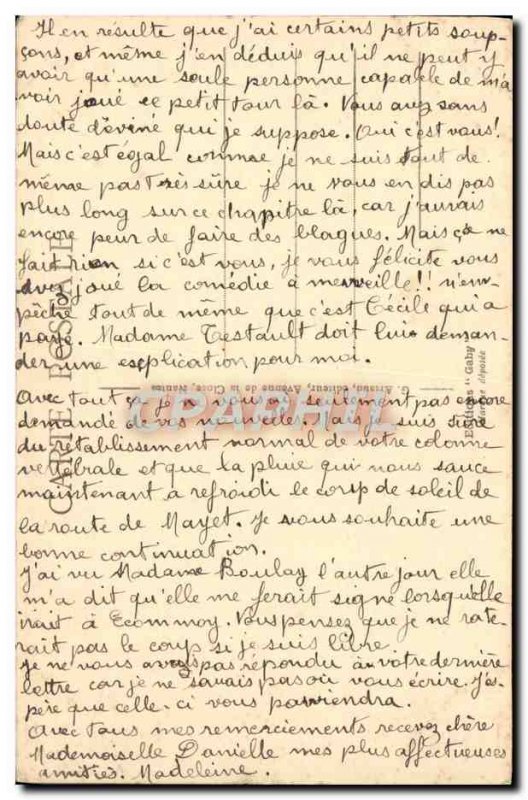 Il en résulte que j'ai certains petits soup-
çons, et même j'en déduis qu'il ne peut y
avoir qu'une seule personne capable de m'a
voir joué ce petit tour là. Vous avez sans
doute deviné qui je suppose. Oui c'est vous!
Mais c'est égal comme je ne suis tout de
même pas très sûre je ne vous en dis pas
plus long sur ce chapitre là, car j'aurais
encore peur de faire des blagues. Mais ça ne
fait rien si c'est vous, je vous félicite vous
avez joué la comédie à merveille!! n'em-
pêche tout de même que c'est Cécile qui a
payé. Madame Testault doit lui deman-
der une explication pour moi.
Avec tout ça je ne vous ai seulement pas encore
demandé de vos nouvelles. Mais je suis sûre
du rétablissement normal de votre colonne
vertébrale et que la pluie qui nous sauce
maintenant a refroidi le coup de soleil de
la route de Mayet. Je vous souhaite une
bonne continuation.
J'ai vu Madame Boulay l'autre jour elle
m'a dit qu'elle me ferait signe lorsqu'elle
irait à Ecommoy. Vous pensez que je ne rate-
rait pas le coup si je suis libre.
Je ne vous avais pas répondu à votre dernière
lettre car je ne savais pas où vous écrire. J'es-
père que celle-ci vous parviendra.
Avec tous mes remerciements recevez chère
Mademoiselle Danielle mes plus affectueuses
amitiés. Madeleine.
CARTE POSTALE
G. Artaud, éditeur, Avenue de la Close, Nantes
Editions "Gaby"
Marque déposée
CPAPHIL